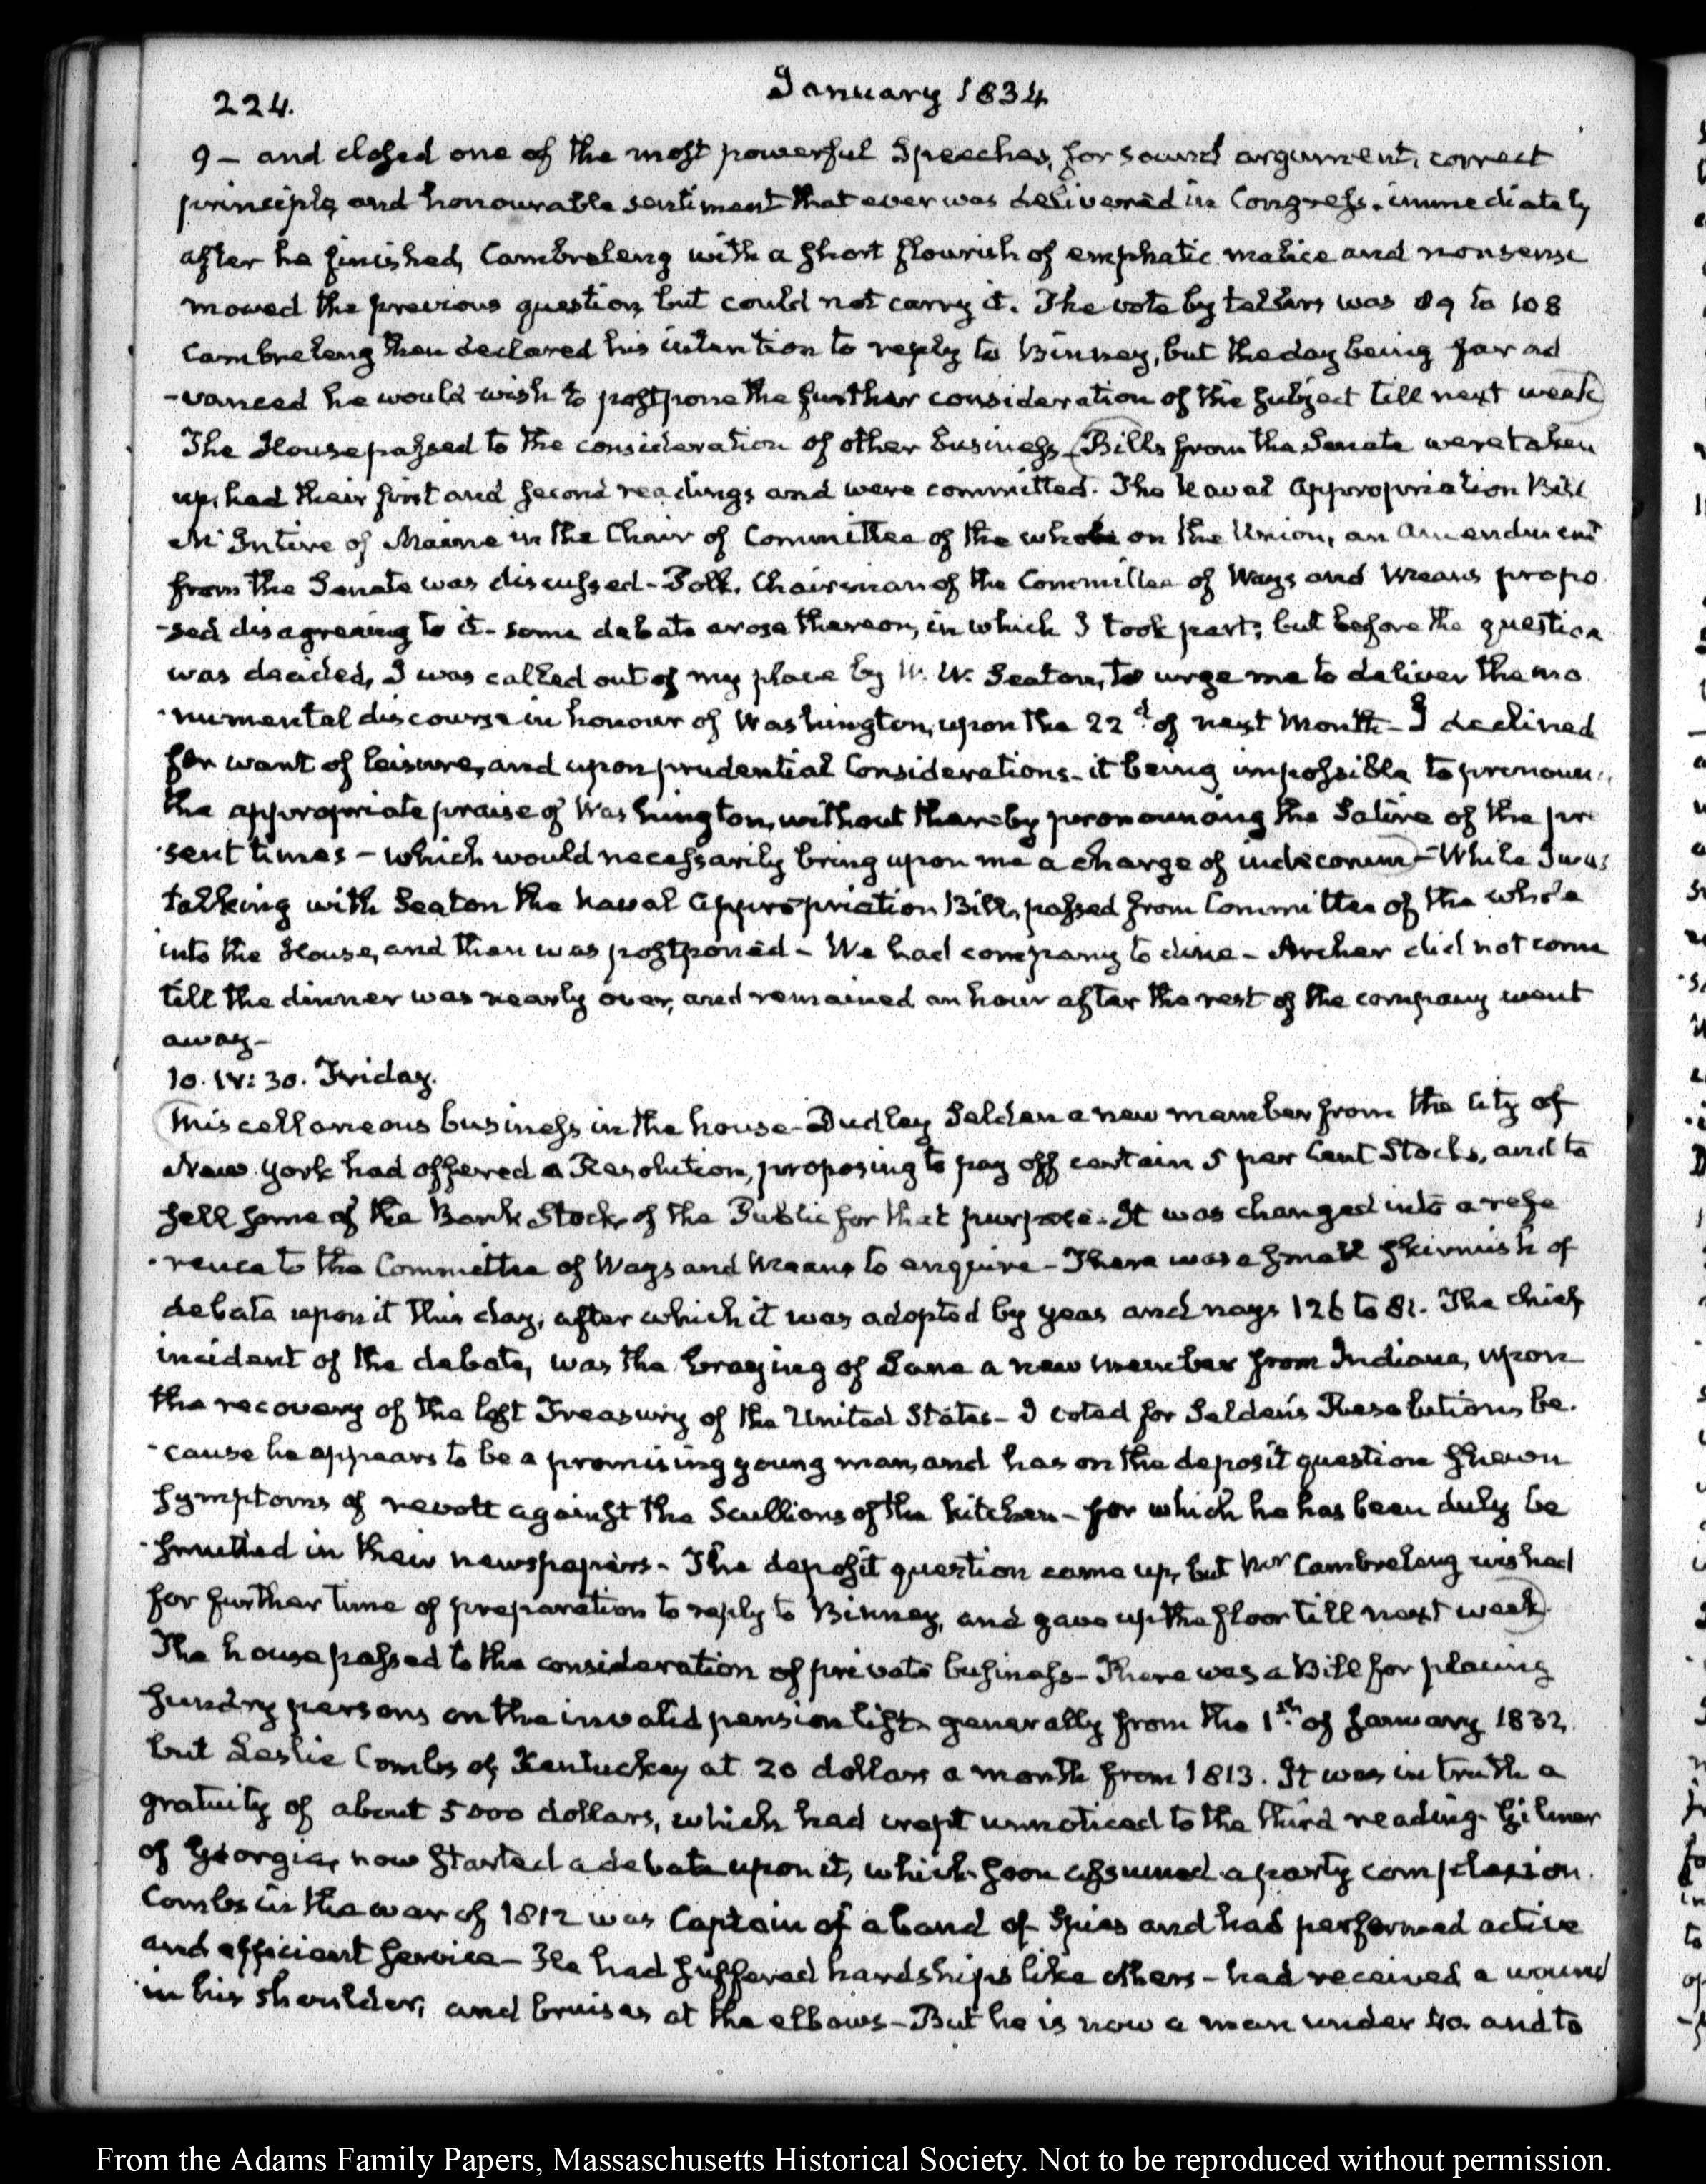 224.
January 1834
9 - and closed one of the most powerful Speeches, for sound argument, correct
principle, and honourable sentiment that ever was delivered in Congress. immediately
after he finished, Cambreleng with a short flourish of emphatic malice and nonsense
moved the previous question, but could not carry it. The vote by tellers was 89 to 108
Cambreleng then declared his intention to reply to Binney, but the day being far ad
-vanced he would wish to postpone the further consideration of the subject till next week
The House passed to the consideration of other business - Bills from the Senate were taken
up, had their first and second readings and were committed. The Naval Appropriation Bill
McIntire of Maine in the Chair of Committee of the whole on the Union, an amendment
from the Senate was discussed - Polk, Chairman of the Committee of Ways and Means propo
-sed disagreeing to it - some debate arose thereon, in which I took part; but before the question
was decided, I was called out of my place by W. W. Seaton, to urge me to deliver the mo
-numental discourse in honour of Washington, upon the 22d of next Month - I declined
for want of leisure, and upon prudential Considerations - it being impossible to pronoun
the appropriate praise of Washington, without thereby pronouncing the Satire of the pre
-sent times - which would necessarily bring upon me a charge of indecorum - While I was
talking with Seaton the naval Appropriation Bill, passed from Committee of the whole
into the House, and then was postponed - We had company to dine - Archer did not come
till the dinner was nearly over, and remained an hour after the rest of the company went
away -
10. IV: 30. Friday.
Miscellaneous business in the house - Dudley Selden a new member from the City of
New York had offered a Resolution, proposing to pay off certain 5 per Cent Stocks, and to
sell some of the Bank Stock, of the Public for that purpose. It was changed into a refe
-rence to the Committee of Ways and Means to enquire - There was a small skirmish of
debate upon it this day; after which it was adopted by yeas and nays 126 to 81. The chief
incident of the debate, was the braying of Lane a new member from Indiana, upon
the recovery of the lost Treasury of the United States - I voted for Selden's Resolution, be.
-cause he appears to be a promising young man, and has on the deposit question shewn
symptoms of revolt against the Scullions of the kitchen - for which he has been duly be
-smutted in their newspapers - The deposit question came up, but Mr Cambreleng wished
for further time of preparation to reply to Binney, and gave up the floor till next week.
The house passed to the consideration of private business - There was a Bill for placing
sundry persons on the invalid pension list, generally from the 1st of January 1832,
but Leslie Combs of Kentuckey at 20 dollars a month from 1813. It was in truth a
gratuity of about 5000 dollars, which had crept unnoticed to the third reading. Gilmer
of Georgia, now started a debate upon it, which soon assumed a party complexion.
Combs in the war of 1812 was Captain of a band of Spies and had performed active
and efficient service - He had suffered hardships like others - had received a wound
in his shoulder, and bruises at the elbows - But he is now a man under 40. and to
From the Adams Family Papers, Massachusetts Historical Society. Not to be reproduced without permission.